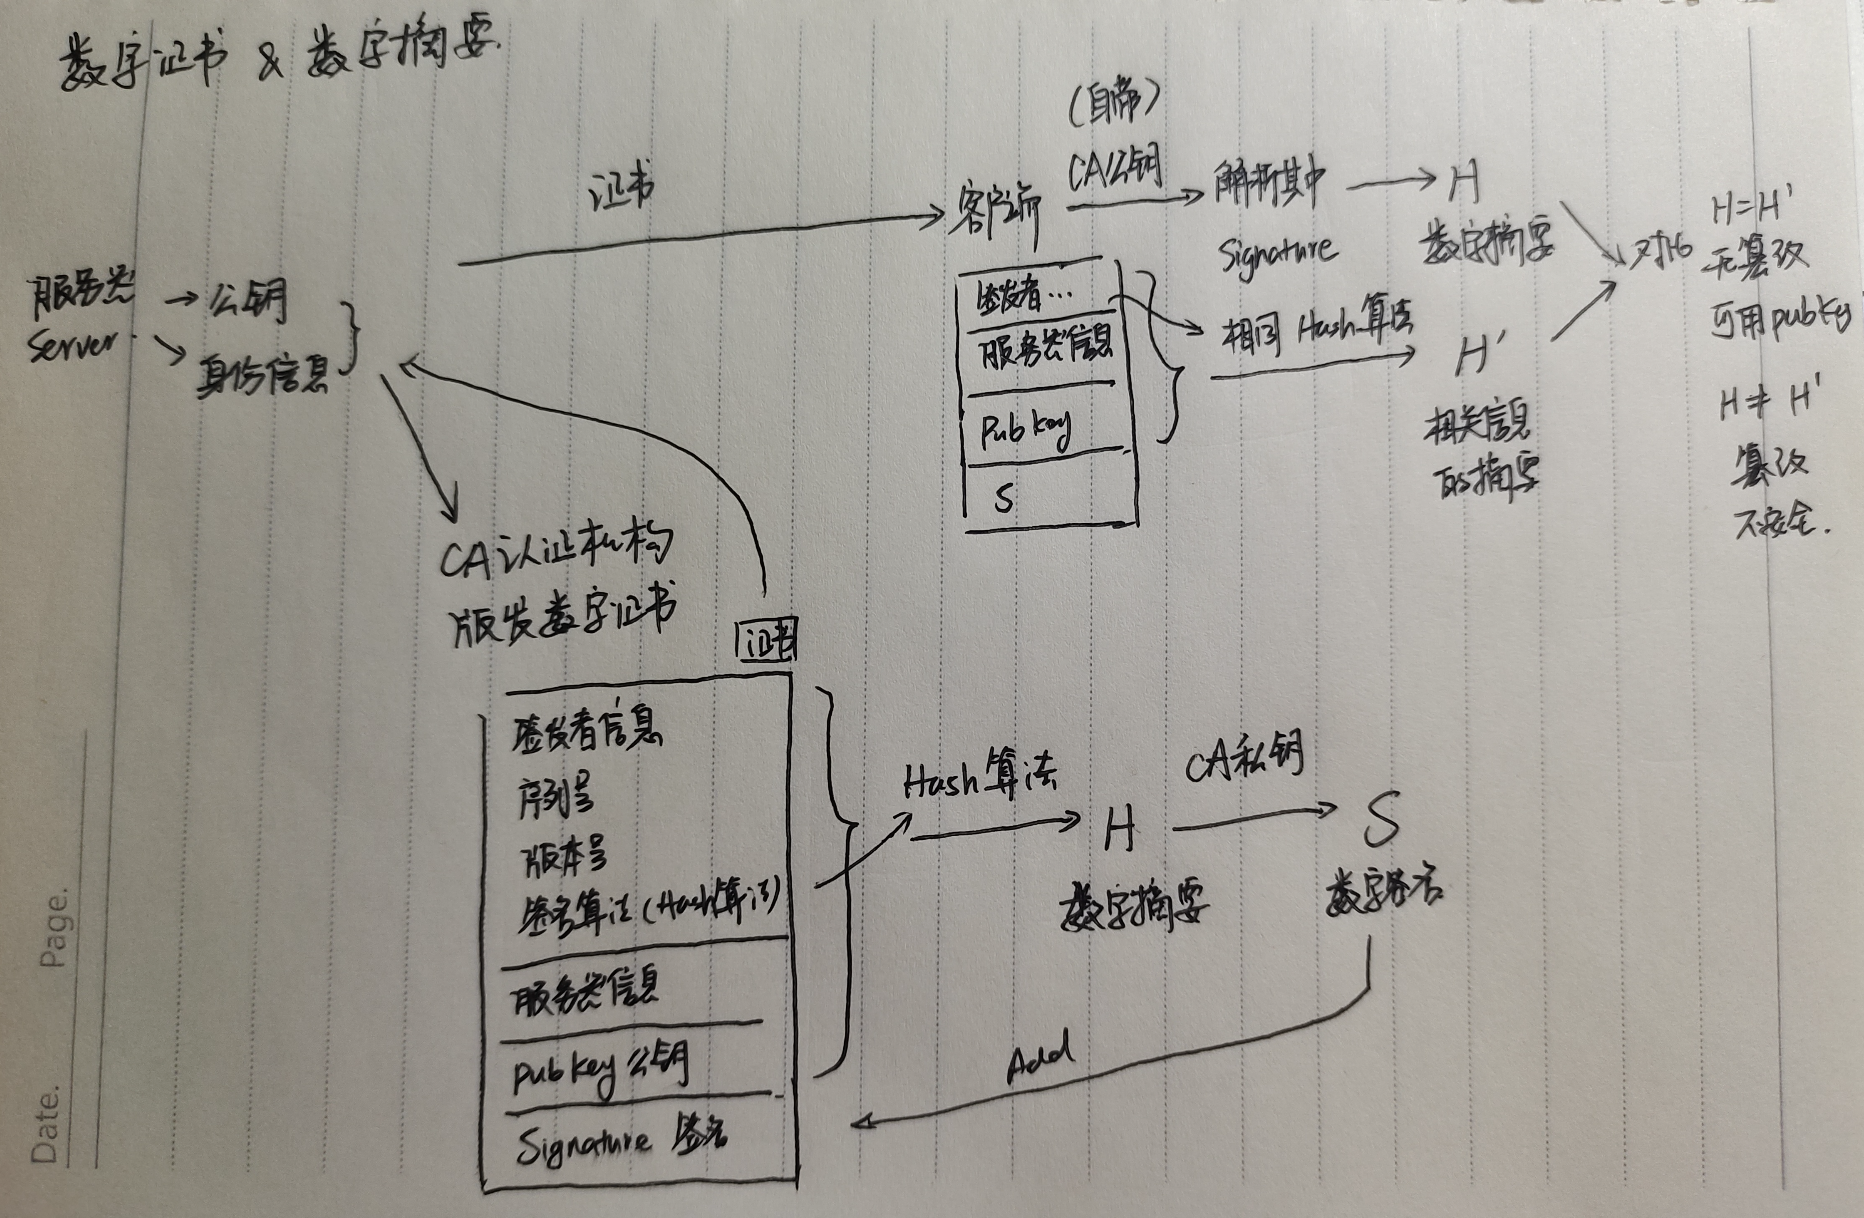 数字证书 & 数字摘要
(自带)
CA公钥
证书
客户端
解析其中
Signature
H
数字摘要
对比
H=H'
无篡改
可用pubkey
服务器
Server
公钥
身份信息
签发者…
服务器信息
Pub key
S
相同 Hash算法
H'
相关信息
的摘要
H≠H'
篡改
不安全.
CA认证机构
版发数字证书
证书
签发者信息
序列号
版本号
签名算法(Hash算法)
服务器信息
pub key 公钥
Signature 签名
Hash算法
H
数字摘要
CA私钥
S
数字签名
Add
Date.
Page.